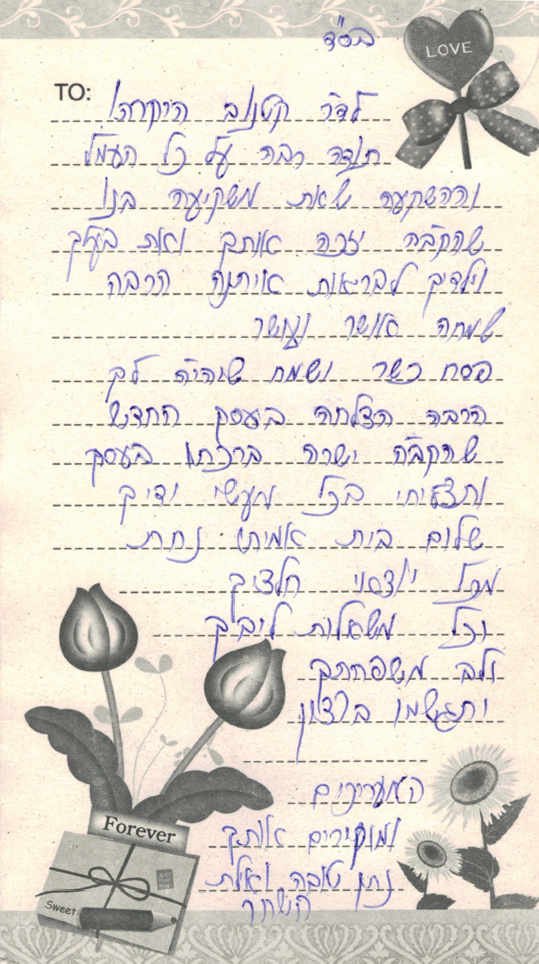 בס"ד
LOVE
TO:
לד"ר קטנוב היקרה!
תודה רבה על כל העמל
וההשקעה שאת משקיעה בנו
שהקב"ה יזכה אותך ואת בעלך
וילדיך לבריאות איתנה הרבה
שמחה אושר ועושר
פסח כשר ושמח שיהיה לך
הרבה הצלחה בעסק החדש
שהקב"ה ישרה ברכתו בעסק
ותצליחי בכל מעשי ידיך
שלום בית אמיתי נחת
מכל יוצאי חלציך
וכל משאלות ליבך
ולב משפחתך
יתגשמו ברצון
המעריכים
ומוקירים אותך
נתן טובה ואילת
השחר
Forever
Sweet